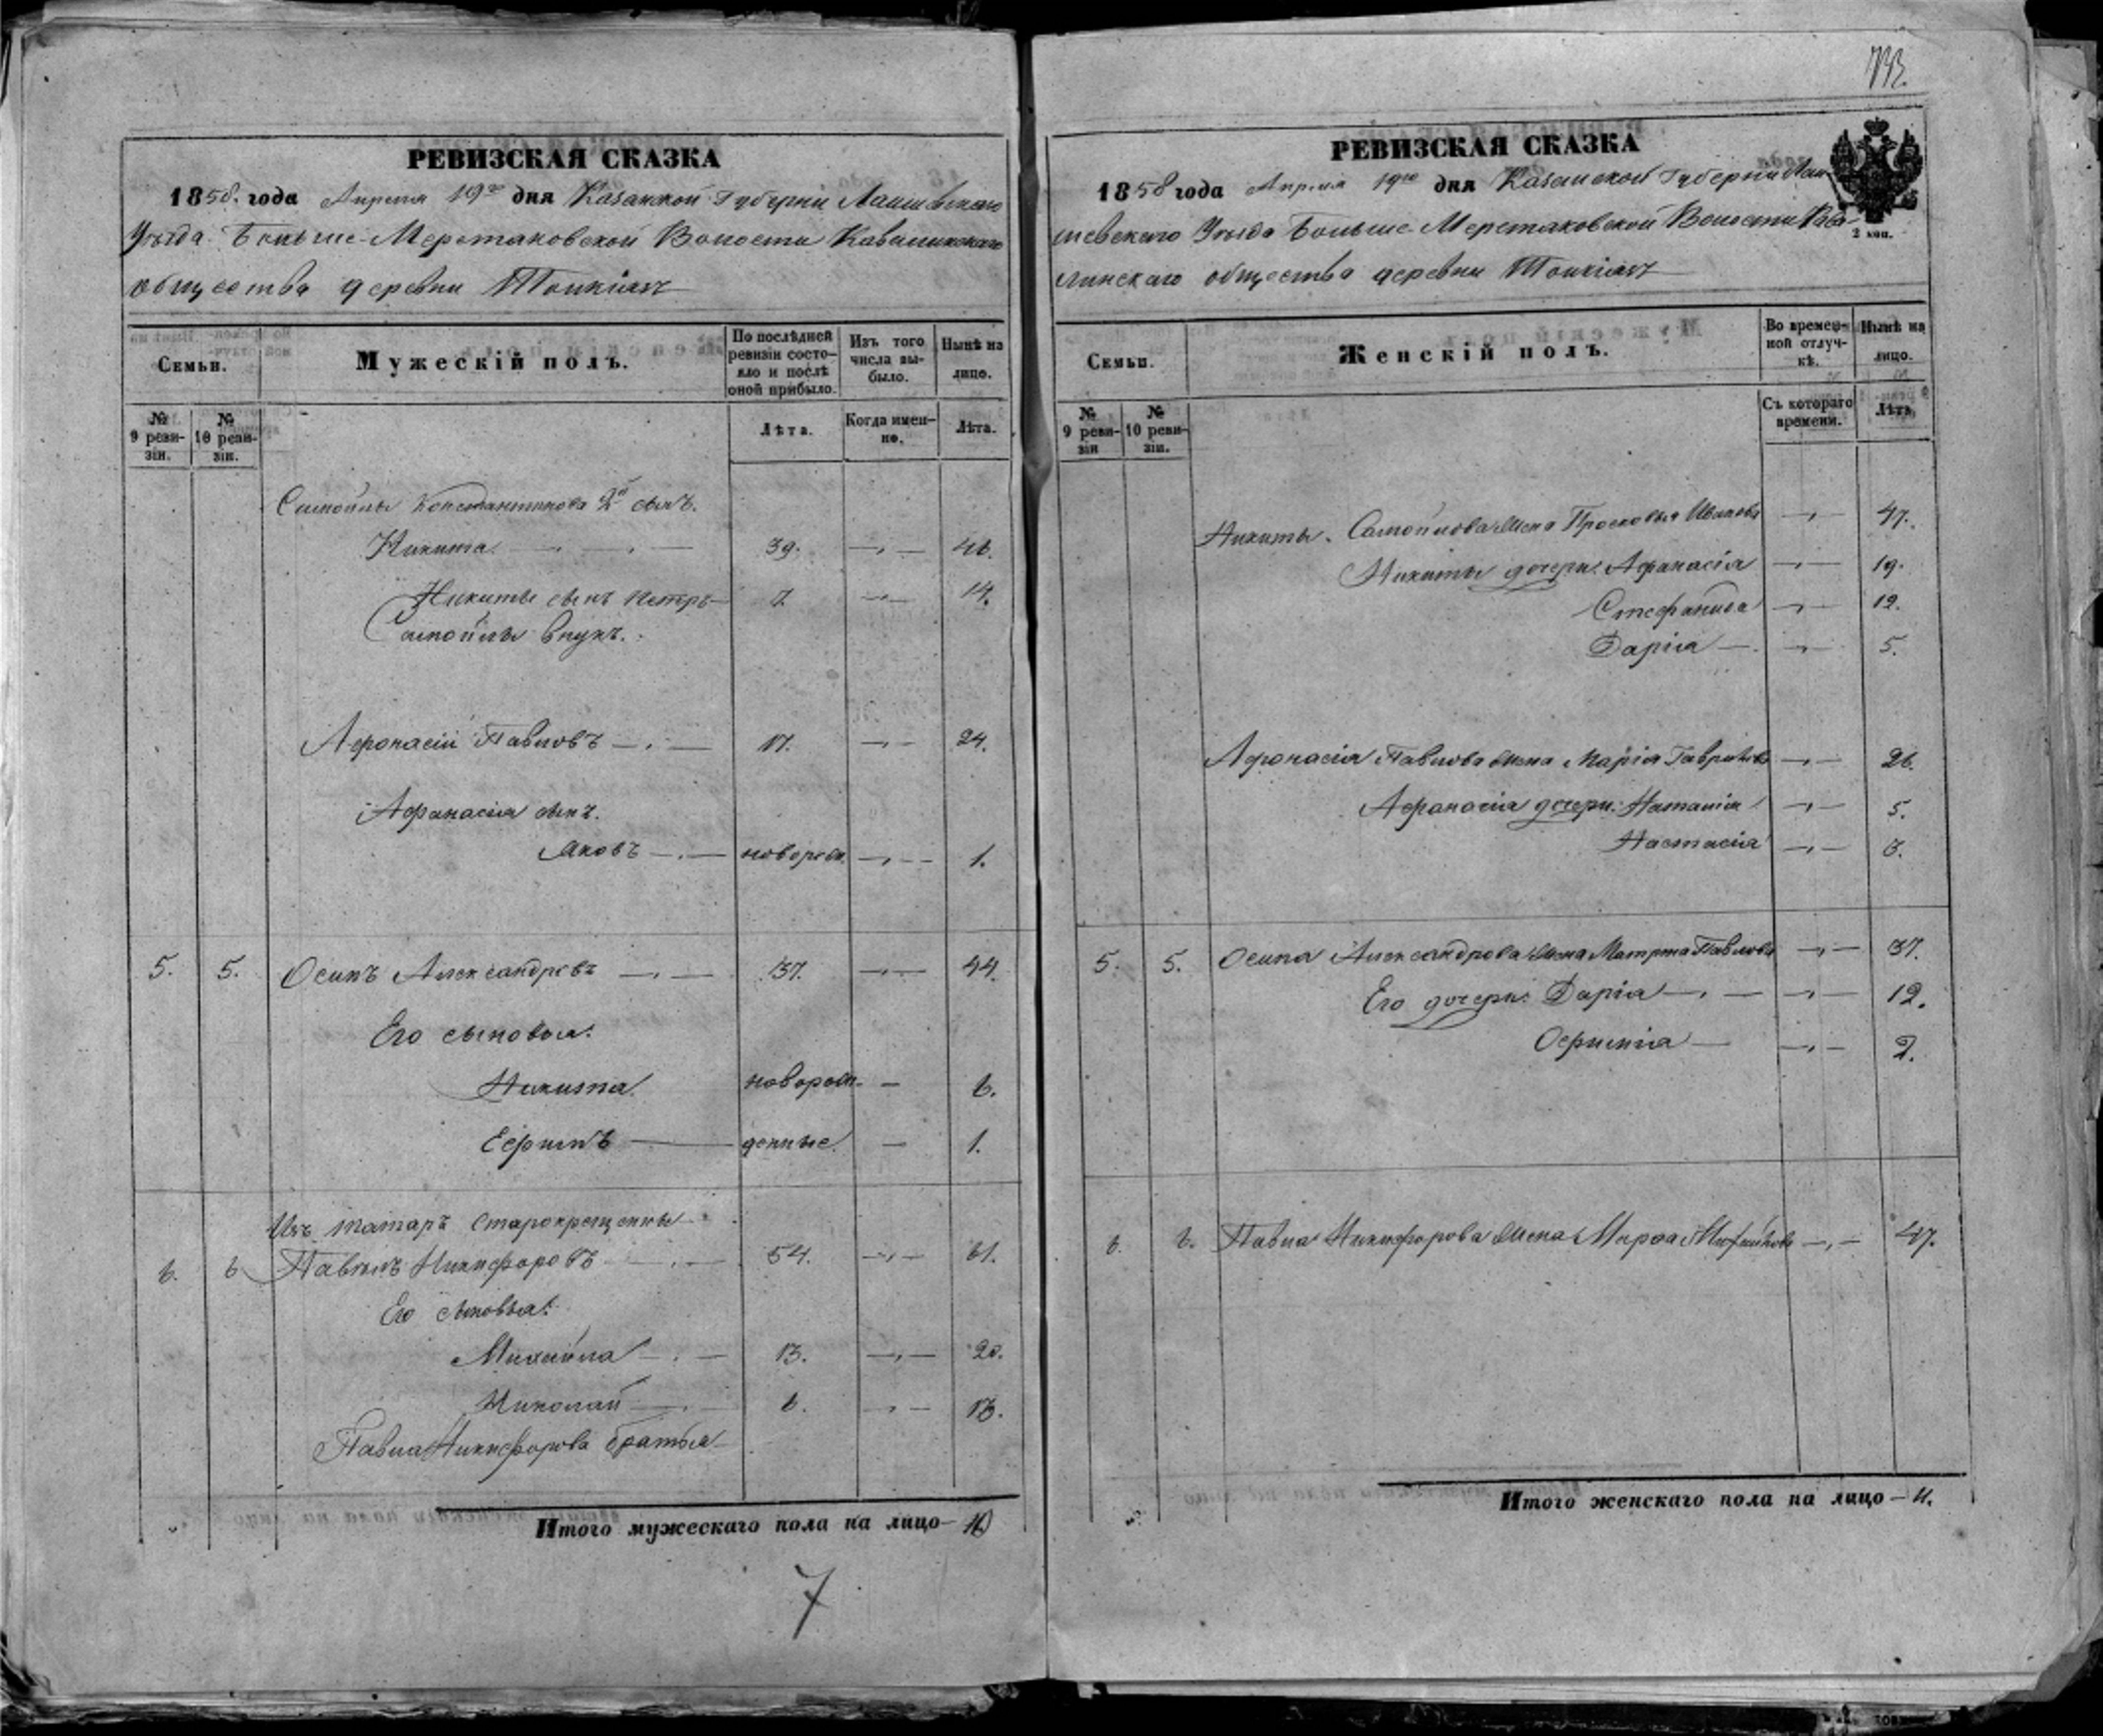 РЕВИЗСКАЯ СКАЗКА
1858. года Апреля 19го дня Казанской Губерніи Лаишевскаго
Уѣзда Больше-Меретяковской Волости Кавалинскаго
общества деревни Тонкіихъ
Семьи.
Мужескій полъ.
По послѣдней ревизіи состо-
яло и послѣ
оной прибыло.
Изъ того числа вы-
было.
Нынѣ на лицо.
№ 9 реви-
зіи.
№ 10 реви-
зіи.
Лѣта.
Когда имен-
но.
Лѣта.
Самойлы Константинова 2й сынъ.
Никита. 39. 46.
Никиты сынъ Петръ 7. 14.
Самойлы внукъ.
Афонасій Павловъ 17. 24.
Афанасія сынъ.
Яковъ новорож. 1.
5. 5. Осипъ Александровъ 37. 44.
Его сыновья:
Никита новорож- 6.
Ефимъ денные. 1.
Изъ татаръ старокрещенны
6. 6 Павелъ Никифоровъ 54. 61.
Его сыновья:
Михайла 13. 20.
Николай 6. 13.
Павла Никифорова братья
Итого мужескаго пола на лицо- 10
7
РЕВИЗСКАЯ СКАЗКА
1858 года Апреля 19го дня Казанской Губерніи Лаи-
шевскаго Уѣзда Больше-Меретяковской Волости Кава-
линскаго общества деревни Тонкіихъ
2 коп.
Семьи.
Женскій полъ.
Во времен-
ной отлуч-
кѣ.
Нынѣ на лицо.
№ 9 реви-
зіи
№ 10 реви-
зіи.
Съ котораго времени.
Лѣта
Никиты. Самойлова жена Просковья Иванова 47.
Никиты дочери: Афанасія 19.
Стефанида 12.
Дарія 5.
Афонасія Павлова жена Марія Гаврилова 26.
Афанасія дочери: Наталія 5.
Настасія 3.
5. 5. Осипа Александрова жена Матрена Павлова 37.
Его дочери: Дарія 12.
Офимія 2.
6. 6. Павла Никифорова жена Марфа 47.
Итого женскаго пола на лицо - 11.